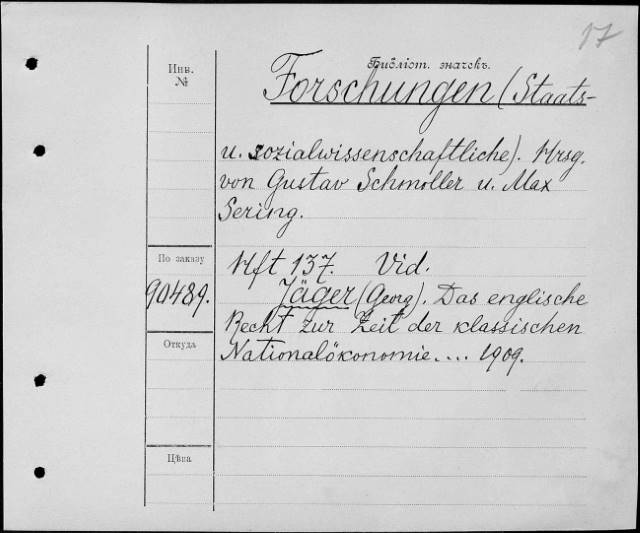 17
Библіот. значекъ.
Инв.
№
Forschungen (Staats-
u. sozialwissenschaftliche). Hrsg.
von Gustav Schmoller u. Max
Sering.
По заказу
90489.
Hft 137. Vid.
Jäger (Georg). Das englische
Recht zur Zeit der klassischen
Откуда
Nationalökonomie.... 1909.
Цѣна